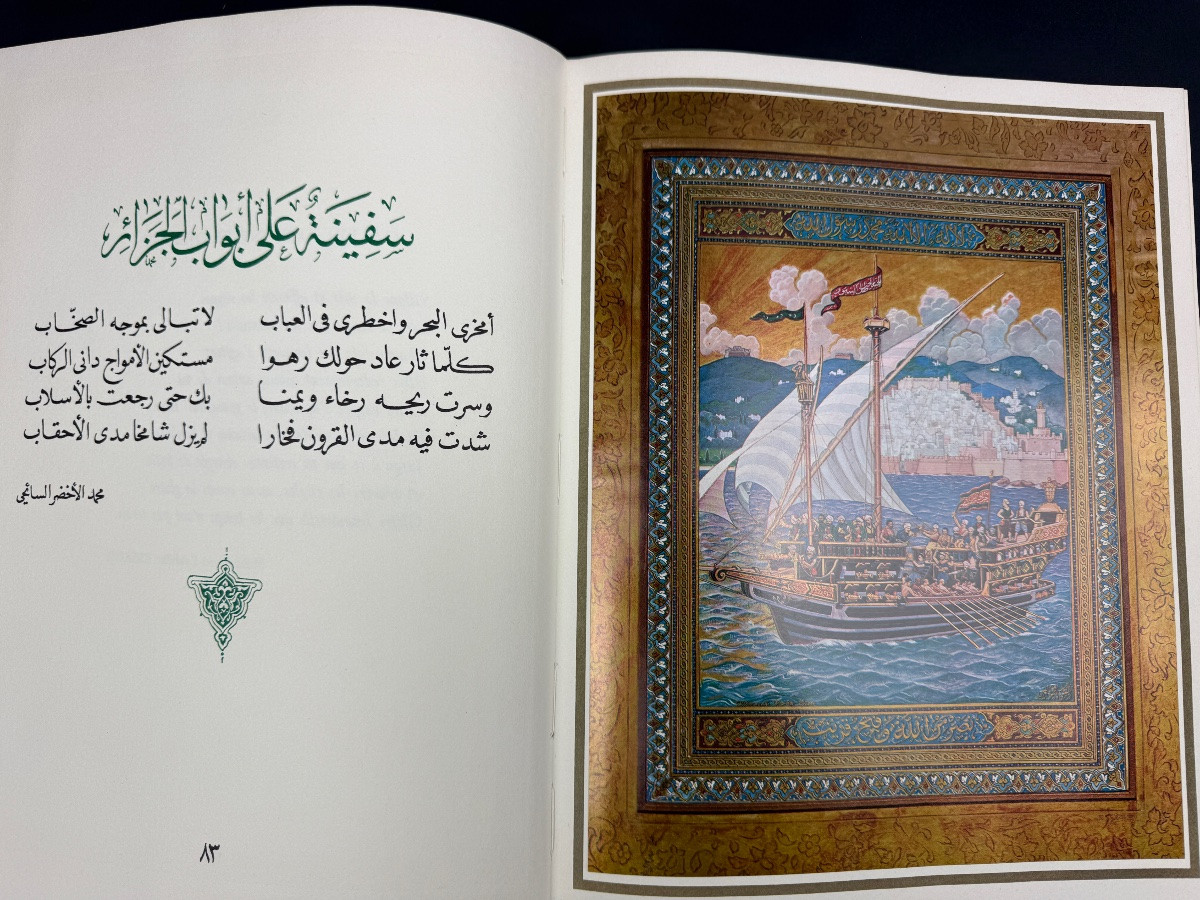 سَفِينَةٌ عَلَى أَبوَابِ الجَزَائر
أمخرى البحر واخطرى فى العباب لا تبالى بموجه الصخّاب
كلّما ثار عاد حولك رهوا مستكين الأمواج دانى الركاب
وسرت ريحه رخاء ويمنا بك حتى رجعت بالأسلاب
شدت فيه مدى القرون فخارا لم يزل شامخا مدى الأحقاب
محمد الأخضر السائحي
٨٣
لا إله إلا الله محمد رسول الله
نصر من الله وفتح قريب